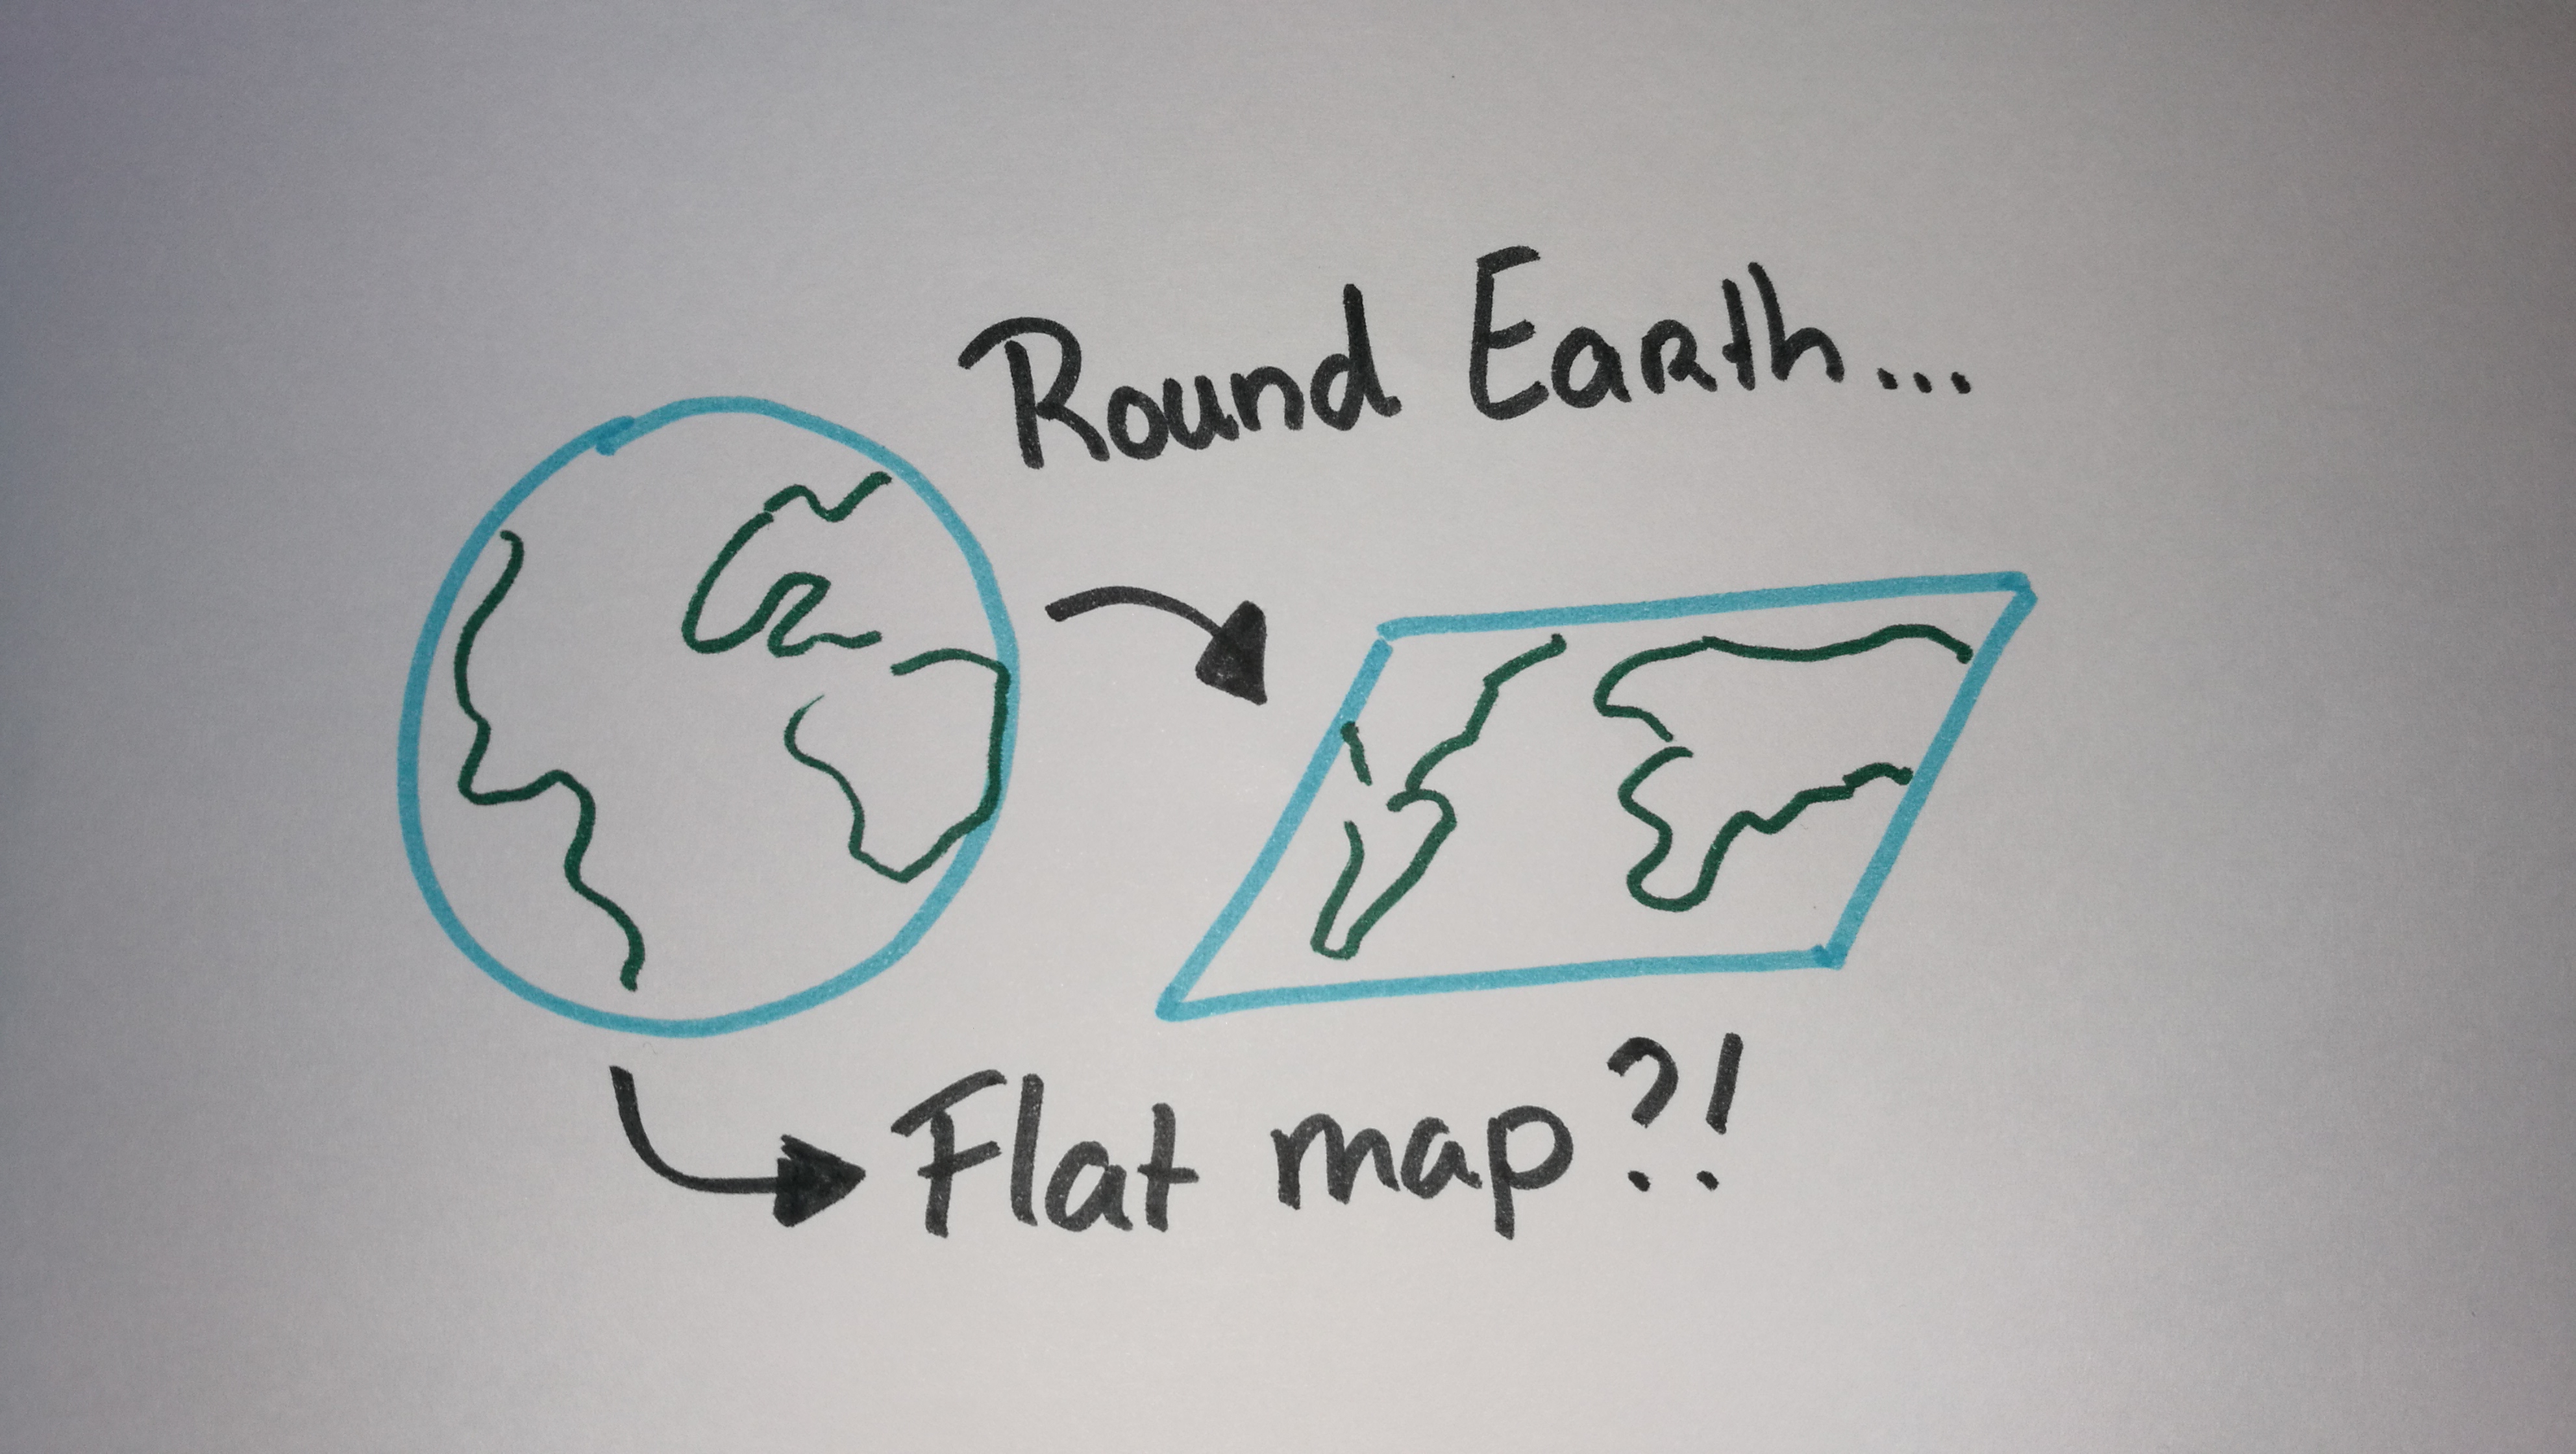 Round Earth...
Flat map?!